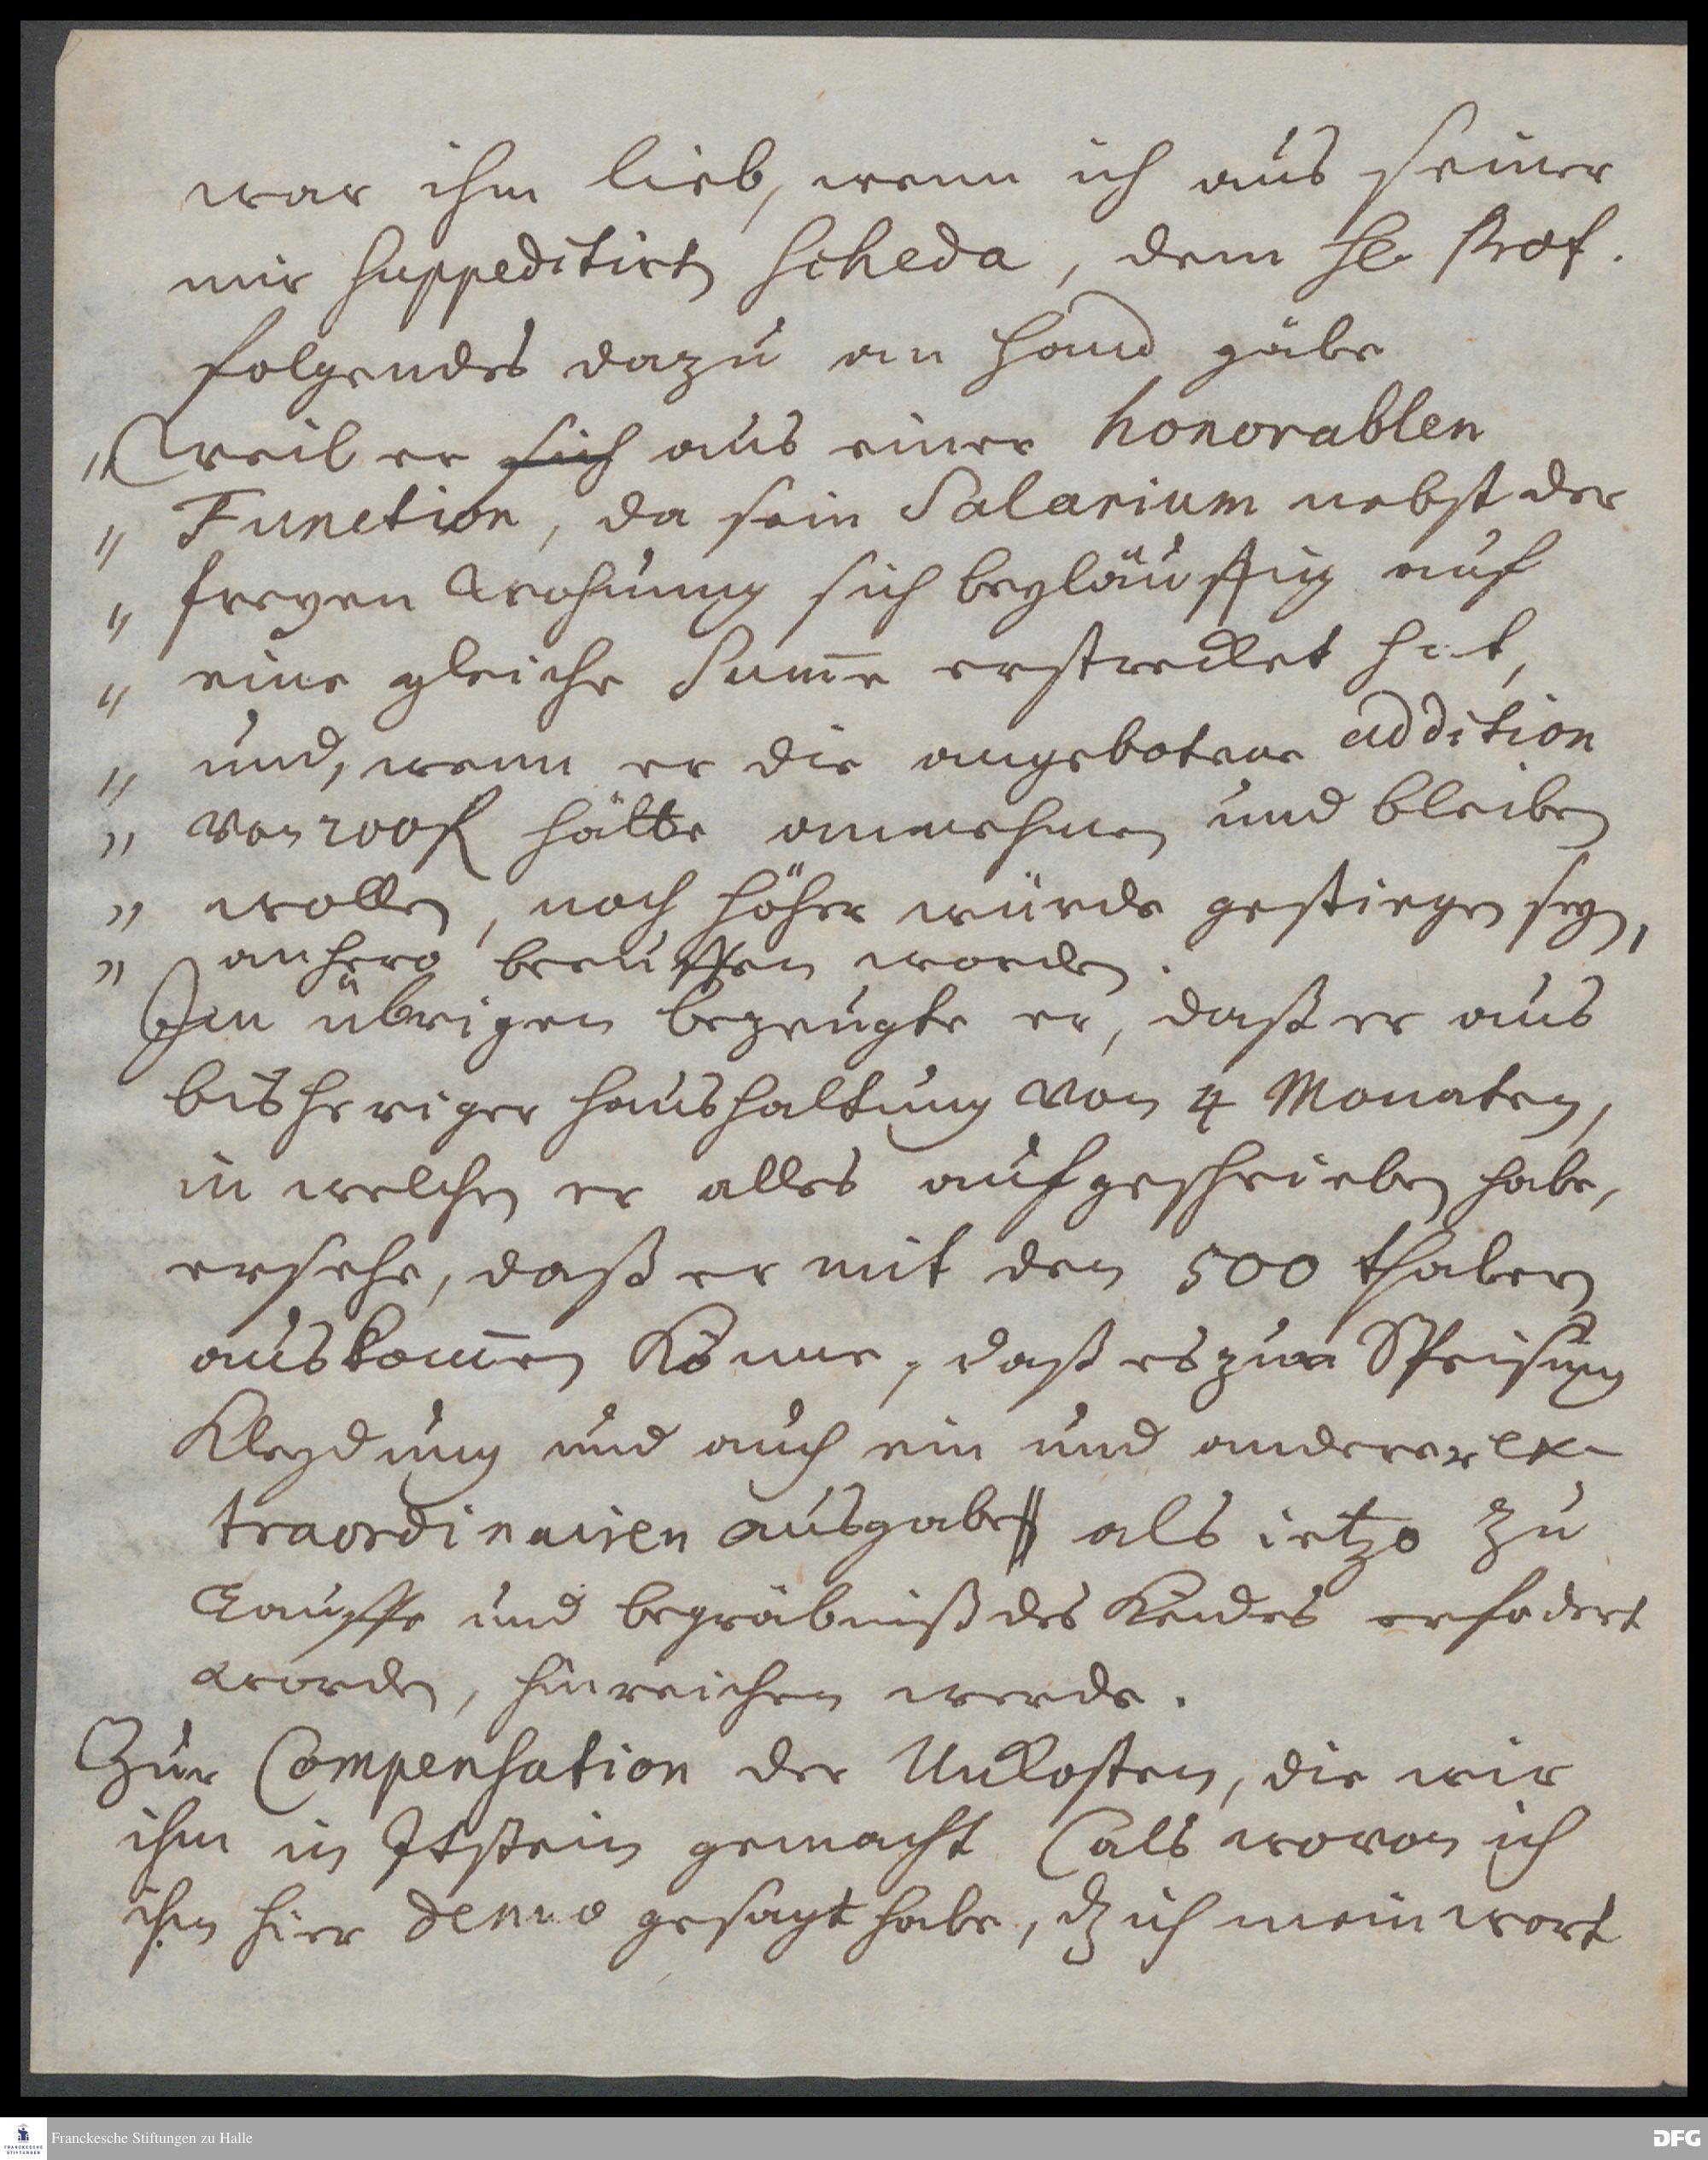 war ihm lieb, wenn ich aus seiner
mir suppeditirten scheda, dem H. Prof.
folgendes dazu an Hand gäbe
„ Weil er sich aus einer honorablen
„ Function, da sein Salarium nebst der
„ freyen Wohnung sich beyläuffig auf
„ eine gleiche Sum̄e erstrecket hat,
„ und, wenn er die angebotene addition
„ von 200 fl hätte annehmen und bleiben
„ wollen, noch höher würde gestiegen seyn,
„ anhero beruffen worden.
Im übrigen bezeugte er, daß er aus
bisheriger Haushaltung von 4 Monaten,
in welchen er alles aufgeschrieben habe,
ersehe, daß er mit den 500 thalern
auskom̄en könne, daß es zur Speisung
Kleydung und auch ein und anderer ex-
traordinairen ausgabe als ietzo zu
Tauffe und begräbniß des Kindes erfodert
worden, hinreichen werde.
Zur Compensation der Unkosten, die wir
ihm in Itstein gemacht (als wovon ich
ihm hier denuo gesagt habe, dz ich mein wort
Franckesche Stiftungen zu Halle
FRANCKESCHE
STIFTUNGEN
DFG